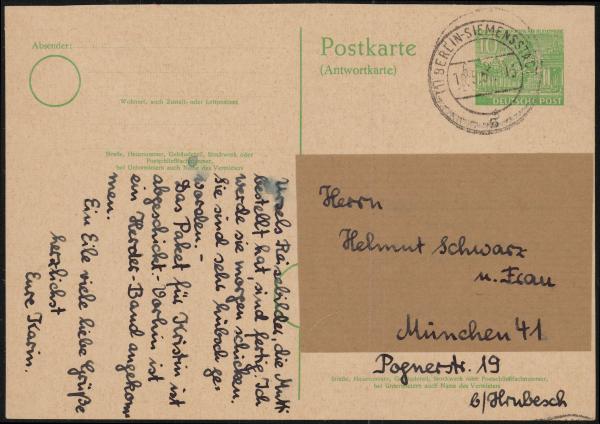 Absender:
Wohnort, auch Zustell- oder Leitpostamt
Straße, Hausnummer, Gebäudeteil, Stockwerk oder
Postschließfachnummer,
bei Untermietern auch Name des Vermieters
Ursels Reisebilder, die Mutti
bestellt hat, sind fertig. Ich
werde sie morgen schicken.
Sie sind sehr hübsch ge-
worden. -
Das Paket für Kristin ist
abgeschickt. Vorhin ist
ein Herder-Band angekom
men.
Ein Eile viele liebe Grüße
herzlichst
Eure Karin.
Postkarte
(Antwortkarte)
BERLIN-SIEMENSSTADT
10
DEUTSCHE POST
Herrn
Helmut Schwarz
u. Frau
München 41
Pognerstr. 19
Straße, Hausnummer, Gebäudeteil, Stockwerk oder Postschließfachnummer,
bei Untermietern auch Name des Vermieters
b/Hrubesch